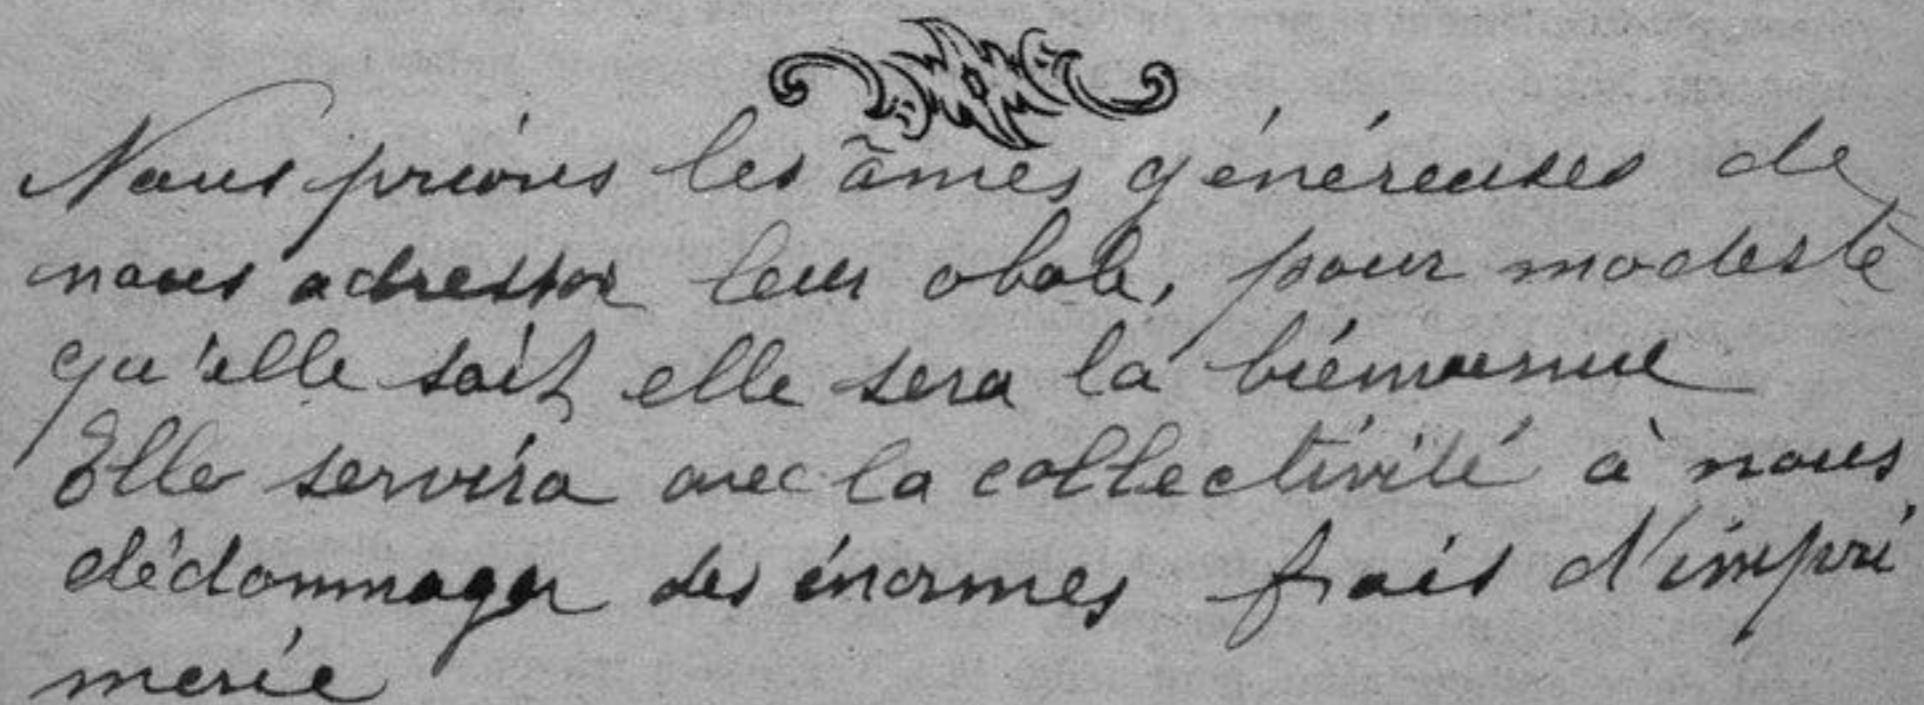 Nous prions les âmes généreuses de
nous adresser leur obole, pour modeste
qu'elle soit elle sera la bienvenue
Elle servira avec la collectivité à nous
dédommager des énormes frais d'impri
merie